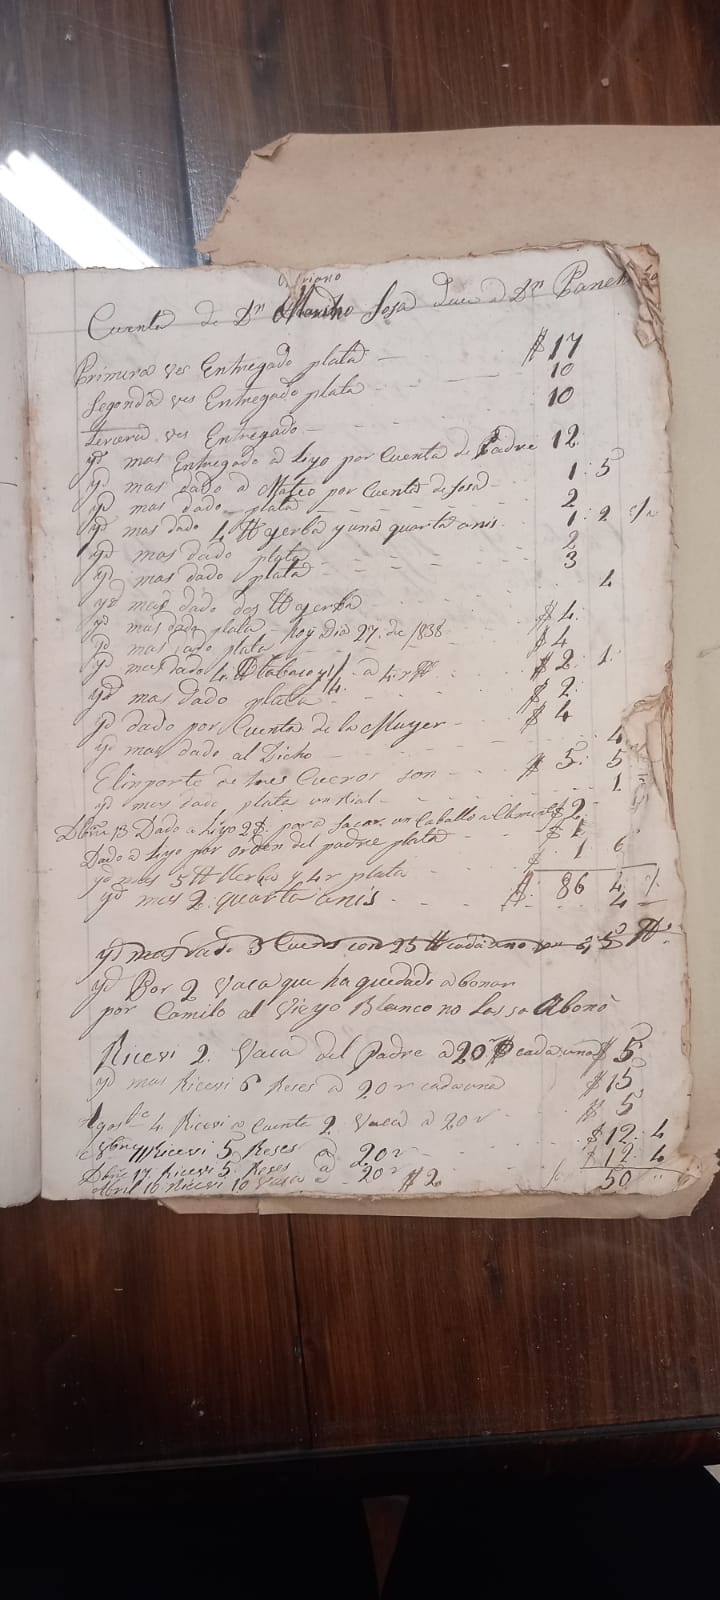 Cuenta de Dn Sosa Due a Dn Panch
Primera ves Entregado plata — $17
Segonda ves Entregado plata — 10
10
tercera ves Entregado —
yd mas Entregado a hiyo por Cuenta de Padre 12
yd mas dado a Mateo por Cuenta de Sosa — 1: 5
yd mas dado plata 2
yd mas dado 4 tt yerba y una quarta anis 1: 2
yd mas dado plata 2
yd mas dado plata 3
yd mas dado dos tt yerba 4
yd mas dado plata — hoy Dia 27 de 1838 $4
yd mas dado plata $4
yd mas dado 4 tt tabaco a 4 r $2: 1
yd mas dado plata 4. $2:
yd dado por Cuenta de la Muyer — $4
yd mas dado al Dicho — 4
El inporte de tres Cueros son — $5: 5
yd mas dado plata un Rial 1
Dbre 13 Dado a hiyo 2$: para sacar un Caballo $2
Dado a hiyo por orden del padre plata $1
yd mas 5 tt Yerba y 4r plata 1 6
$: 86 4
yd mas 2 quarta anis 4
yd mas dado 3 Cueros con 25 tt cada uno
yd Por 2 Vaca que ha quedado abonar
por Camilo al Vieyo Blanco no Abonò
Ricevi 2 Vaca del Padre a 20 cada una $5
yd mas Ricevi 6 Reses a 20 r cada una $15
4 Ricevi a Cuenta 2 Vaca a 20 r $5
11 Ricevi 5 Reses a 20 r $12: 4
Dbre 17 Ricevi 5 Reses a 20 r $12: 4
Abril 16 Ricevi 10 Vaca a 20 r $2 50